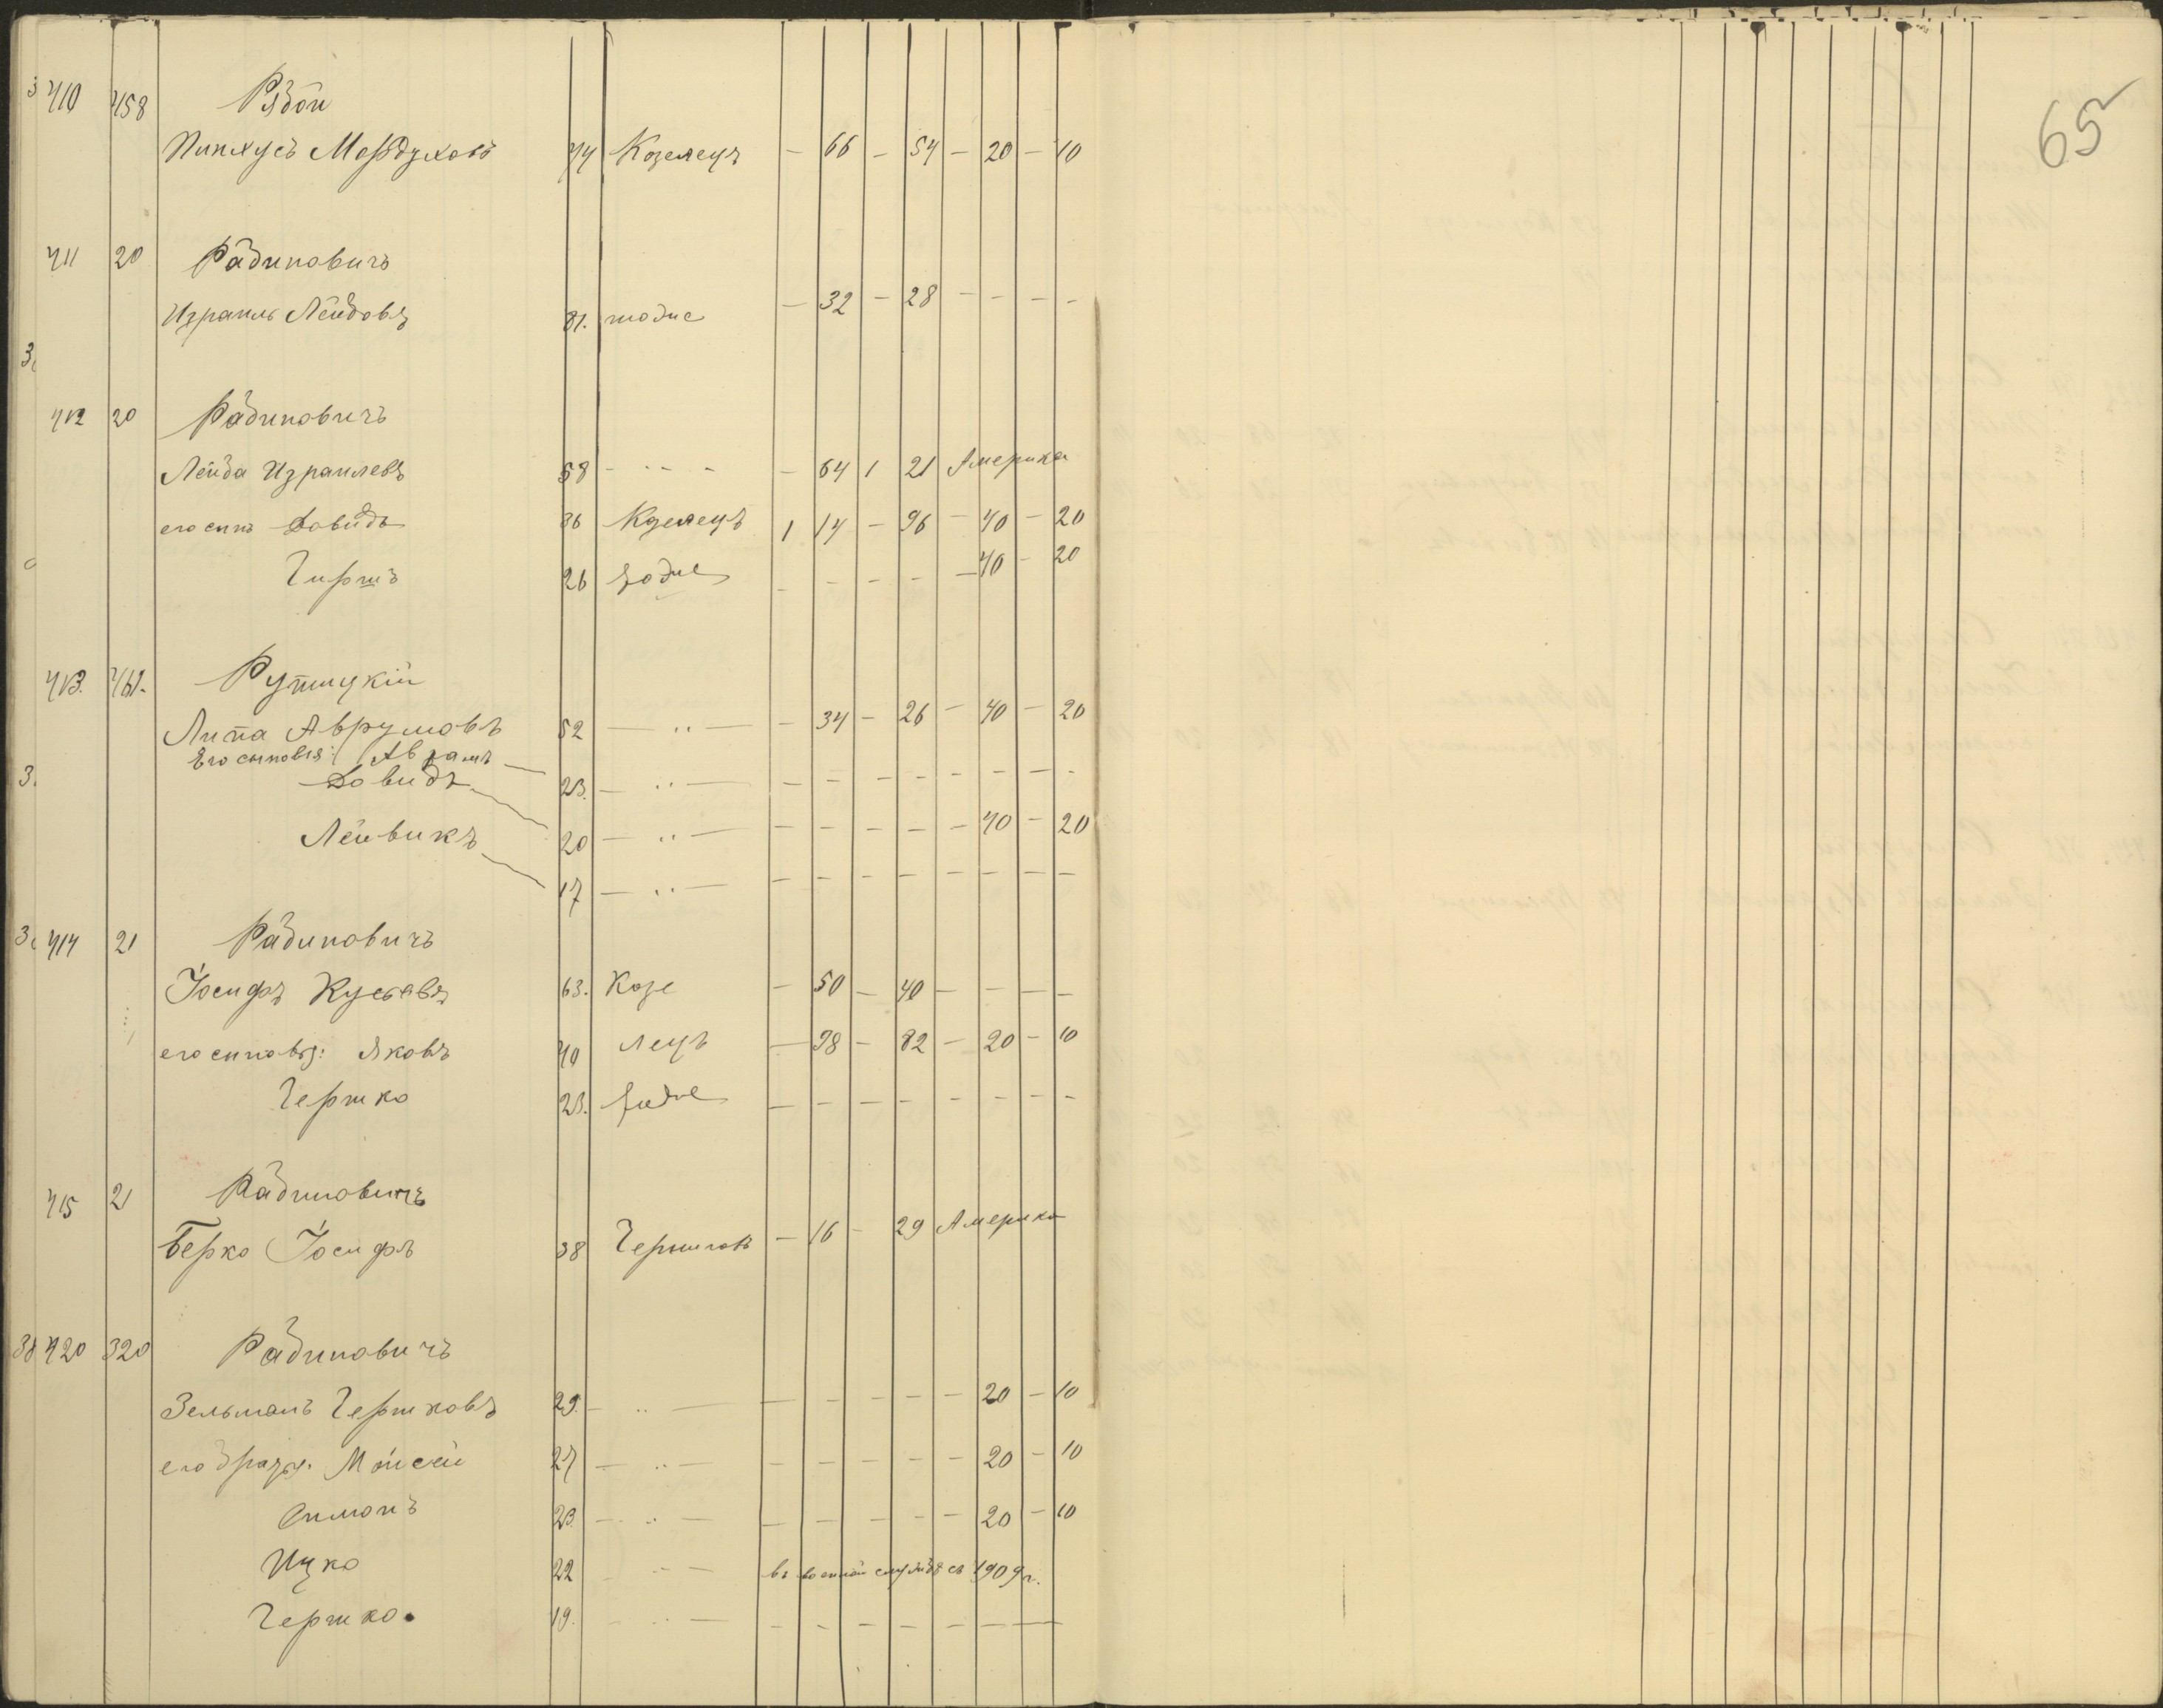 410 458 Рябой
Пинхусъ Мордуховъ 44 Козелецъ — 66 — 54 — 20 — 10
65
411 20 Рабиновичъ
Израиль Лейбовъ 81. тоже — 32 — 28 — — — —
412 20 Рабиновичъ
Лейба Израилевъ 58 — 64 1 21 Америка
его сынъ Довидъ 36 Козелецъ 1 14 — 96 — 40 — 20
Гиршъ 26 — — — — — 40 — 20
413. 461. Рутицкій
Липа Аврумовъ 52 — „ — — 34 — 26 — 40 — 20
Его сыновья: Аврамъ
Довидъ 23. — „ — — — — — — — — —
Лейвикъ 20 — „ — — — — — — 40 — 20
17 — „ — — — — — — — — —
414 21 Рабиновичъ
Іосифъ Кусіевъ 63. Козе — 50 — 40 — — — —
его сыновья: Яковъ 40 лецъ — 98 — 82 — 20 — 10
Гершко 23. — — — — — — — —
415 21 Рабиновичъ
Берко Іосифъ 38 Черниговъ — 16 — 29 Америка
420 320 Рабиновичъ
Зельманъ Гершковъ 29. — „ — — — — — — 20 — 10
его братья: Мойсей 27 — „ — — — — — — 20 — 10
Симонъ 23. — „ — — — — — — 20 — 10
Ицко 22 „ — въ военной службѣ съ 1909 г.
Гершко. 19. „ — — — — — — — —